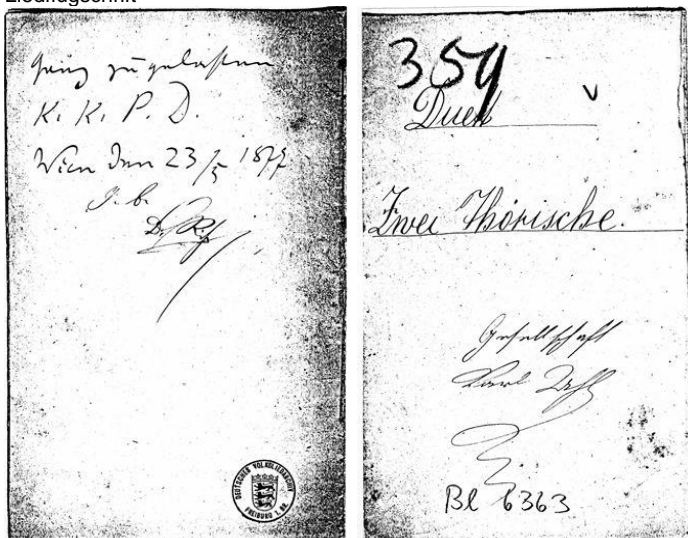 ganz zugelassen
K. K. P. D.
Wien den 23/5 1877
DEUTSCHES VOLKSLIEDARCHIV
FREIBURG I. BR.
359
Duett
Zwei Thörische.
Gesellschaft
Karl
Bl 6363